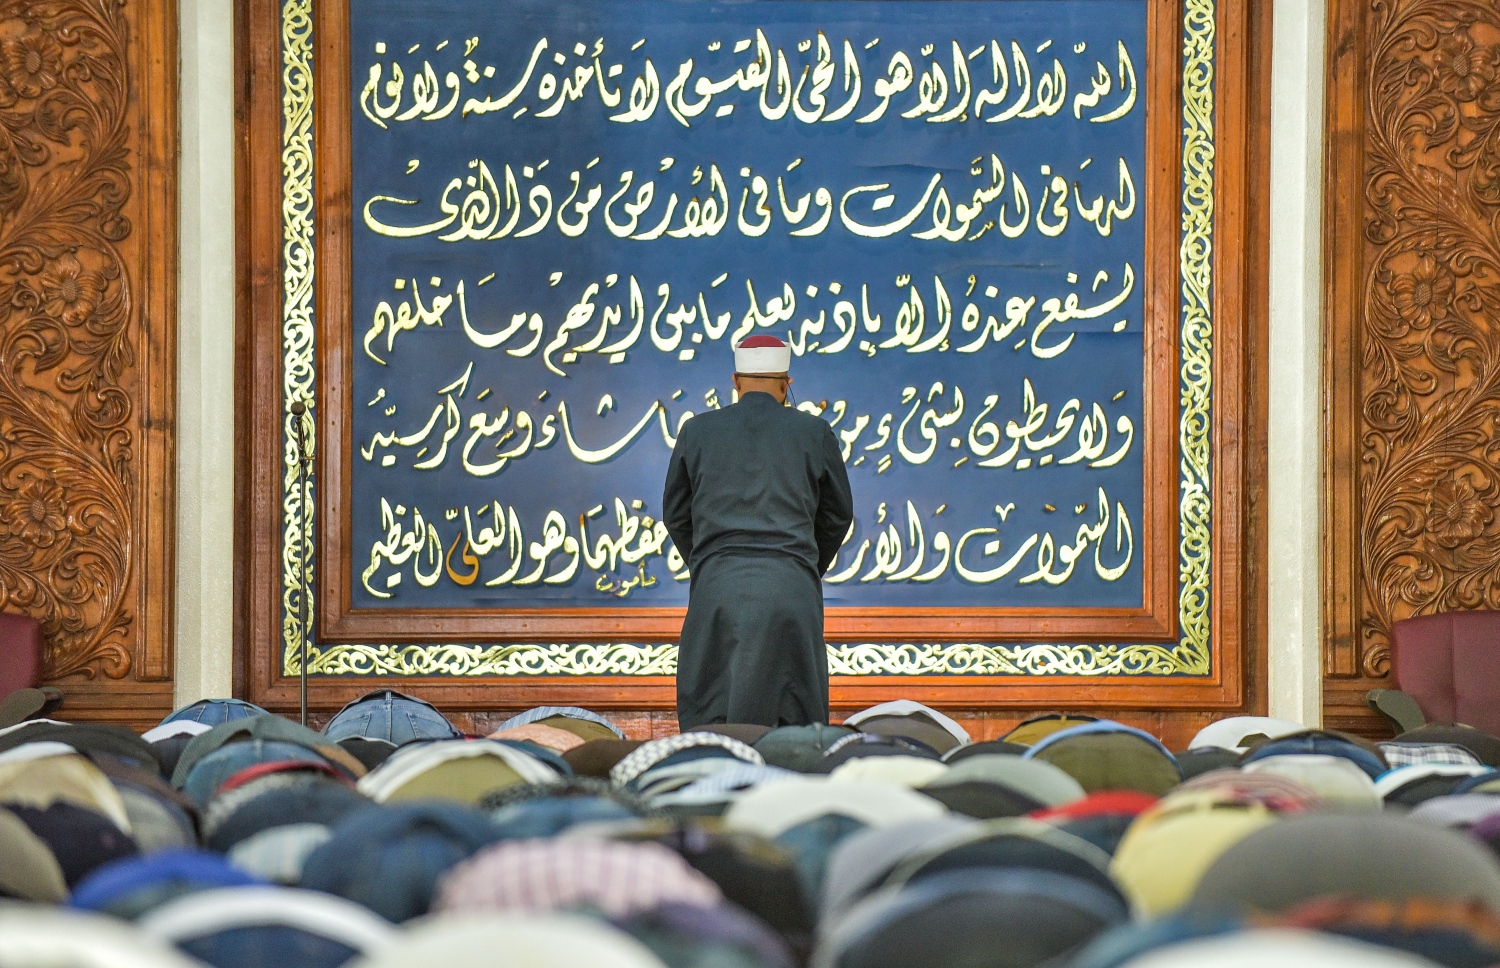 الله لَا اله إلّا هوَ الحيّ القيّوم لا تأخذه سِنةٌ وَلَا نوم
له مَا فى السَّمٰوات ومَا فى الأرض مَنْ ذَا الّذىْ
يشفع عِندهُ إلّا بإذنِه يعلم مَا بين ايْديهِمْ ومَا خلفهم
وَلا يحيطونْ بِشىْءٍ مِنْ شَاءَ وسِعَ كُرسِيّهُ
السّمٰوات وَالأرض حفظهمَا وهو العَلىّ العظيم
مأمون